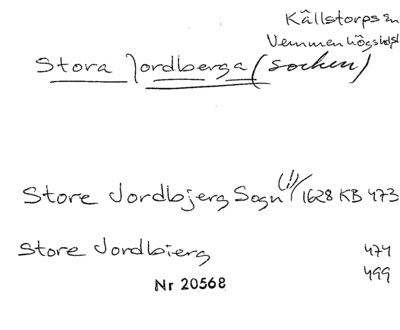 Källstorps sn
Vemmenhögs hd
Stora Jordberga (socken)
Store Jordbjerg Sogn (!) 1628 KB 473
Store Jordbierg 474
499
Nr 20568